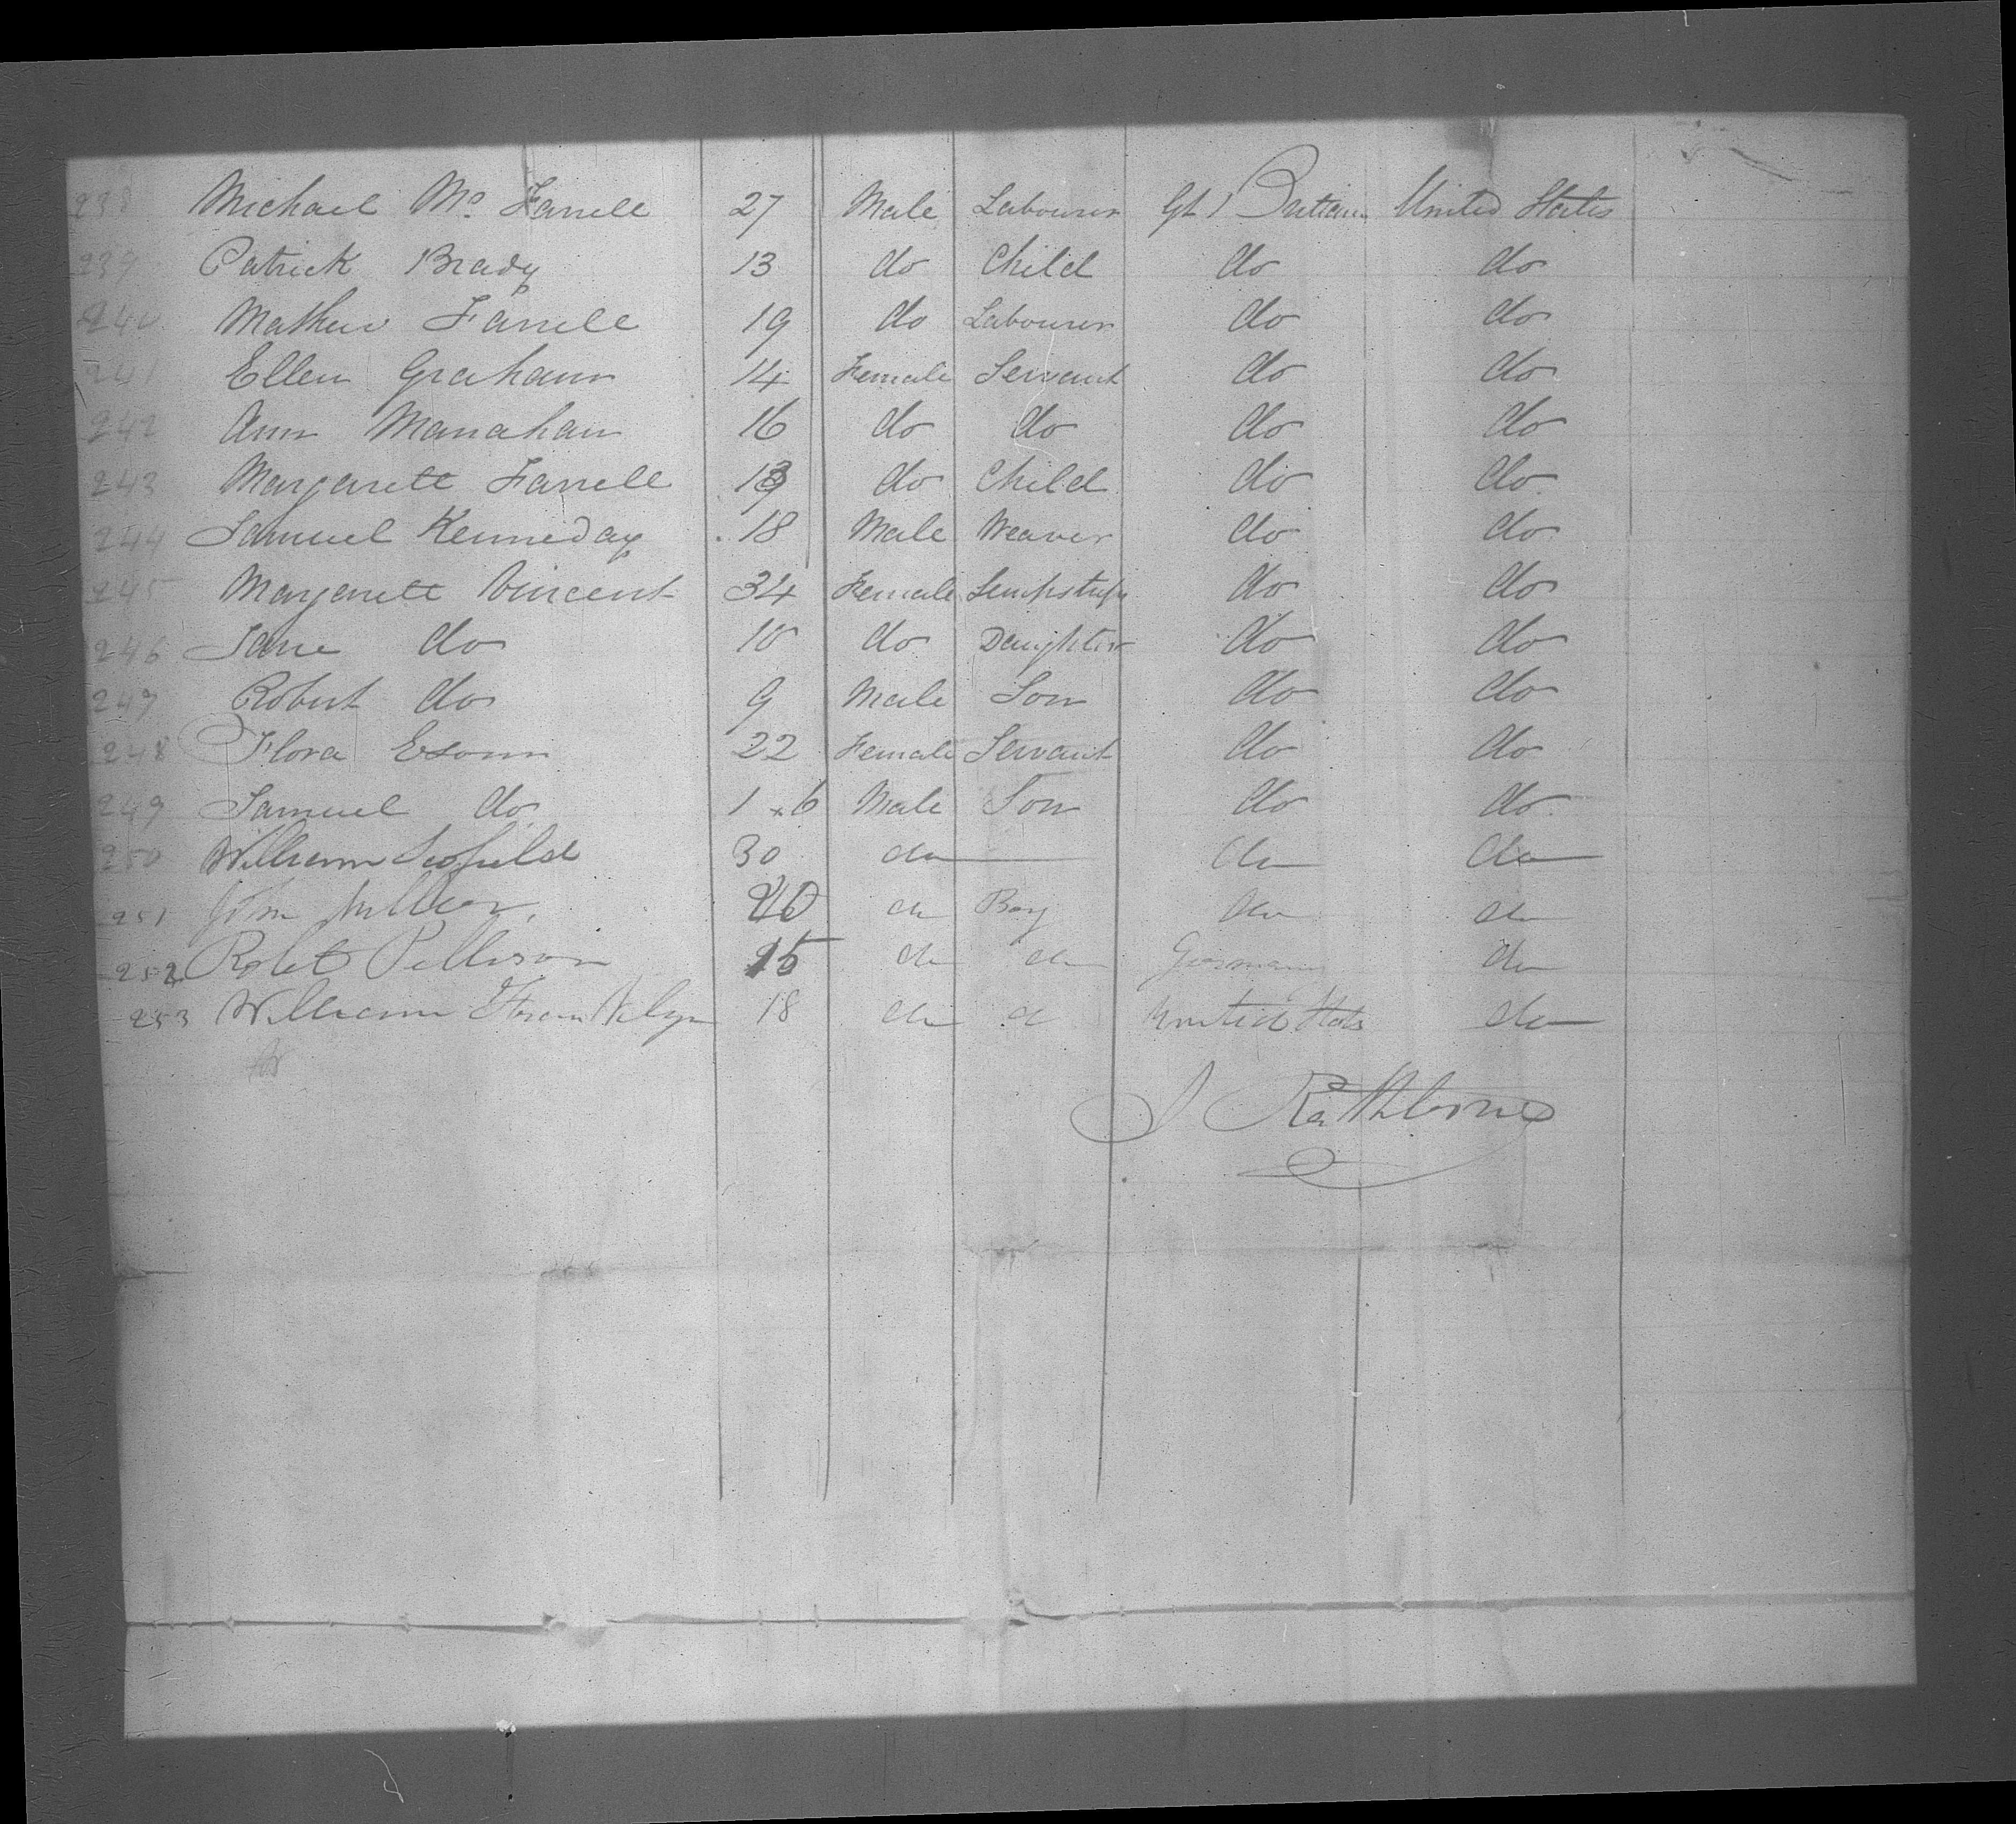 238 Michael Mc Farrell 27 Male Labourer Gt Britain United States
239 Patrick Brady 13 do Child do do
240 Mathew Farrell 19 do Labourer do do
241 Ellen Graham 14 Female Servant do do
242 Ann Manahan 16 do do do do
243 Margarett Farrell 13 do Child do do
244 Samuel Kenneday 18 Male Weaver do do
245 Margarett Vincent 34 Female Sempstress do do
246 Jane do 10 do Daughter do do
247 Robert do 9 Male Son do do
248 Flora Esom 22 Female Servant do do
249 Samuel do 1 6 Male Son do do
250 William Scofield 30 do do do
251 John 20 do Boy do do
252 Robt Pellison 15 do do Germany do
253 William 18 do d United Stats do
J Rathbone